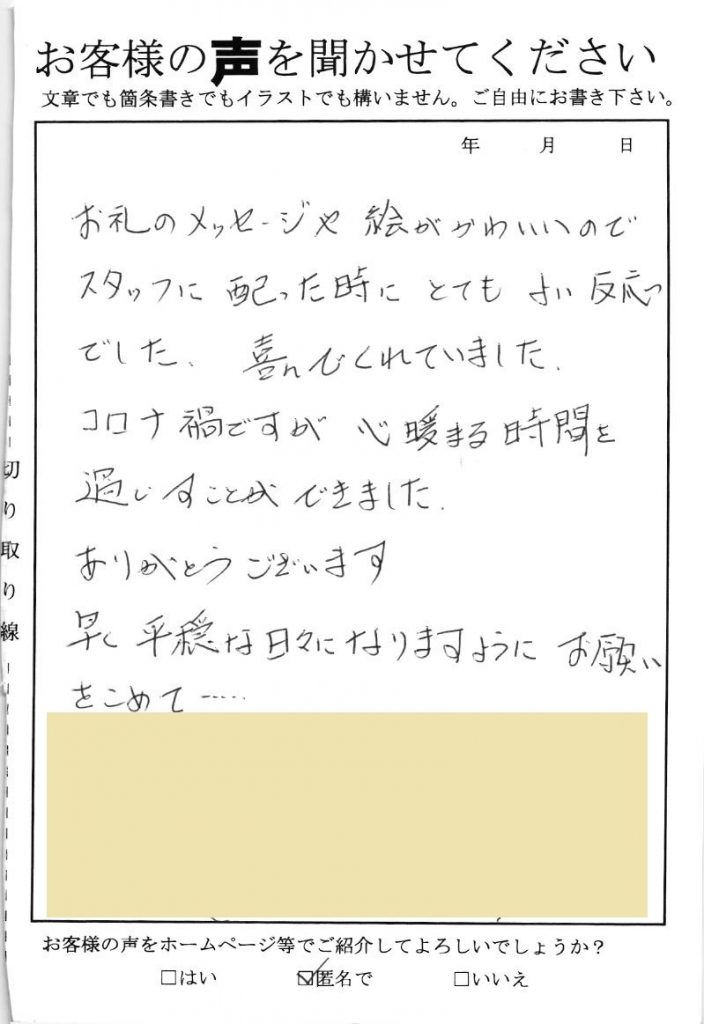 お客様の声を聞かせてください
文章でも箇条書きでもイラストでも構いません。ご自由にお書き下さい。
年 月 日
お礼のメッセージや 絵がかわいいので
スタッフに 配った時に とても よい 反応
でした。 喜んでくれていました。
コロナ禍ですが 心暖まる時間を
過ごすことができました。
ありがとうございます
早く 平穏な日々になりますように お願い
をこめて……
切り取り線
お客様の声をホームページ等でご紹介してよろしいでしょうか？
□はい ☑匿名で □いいえ